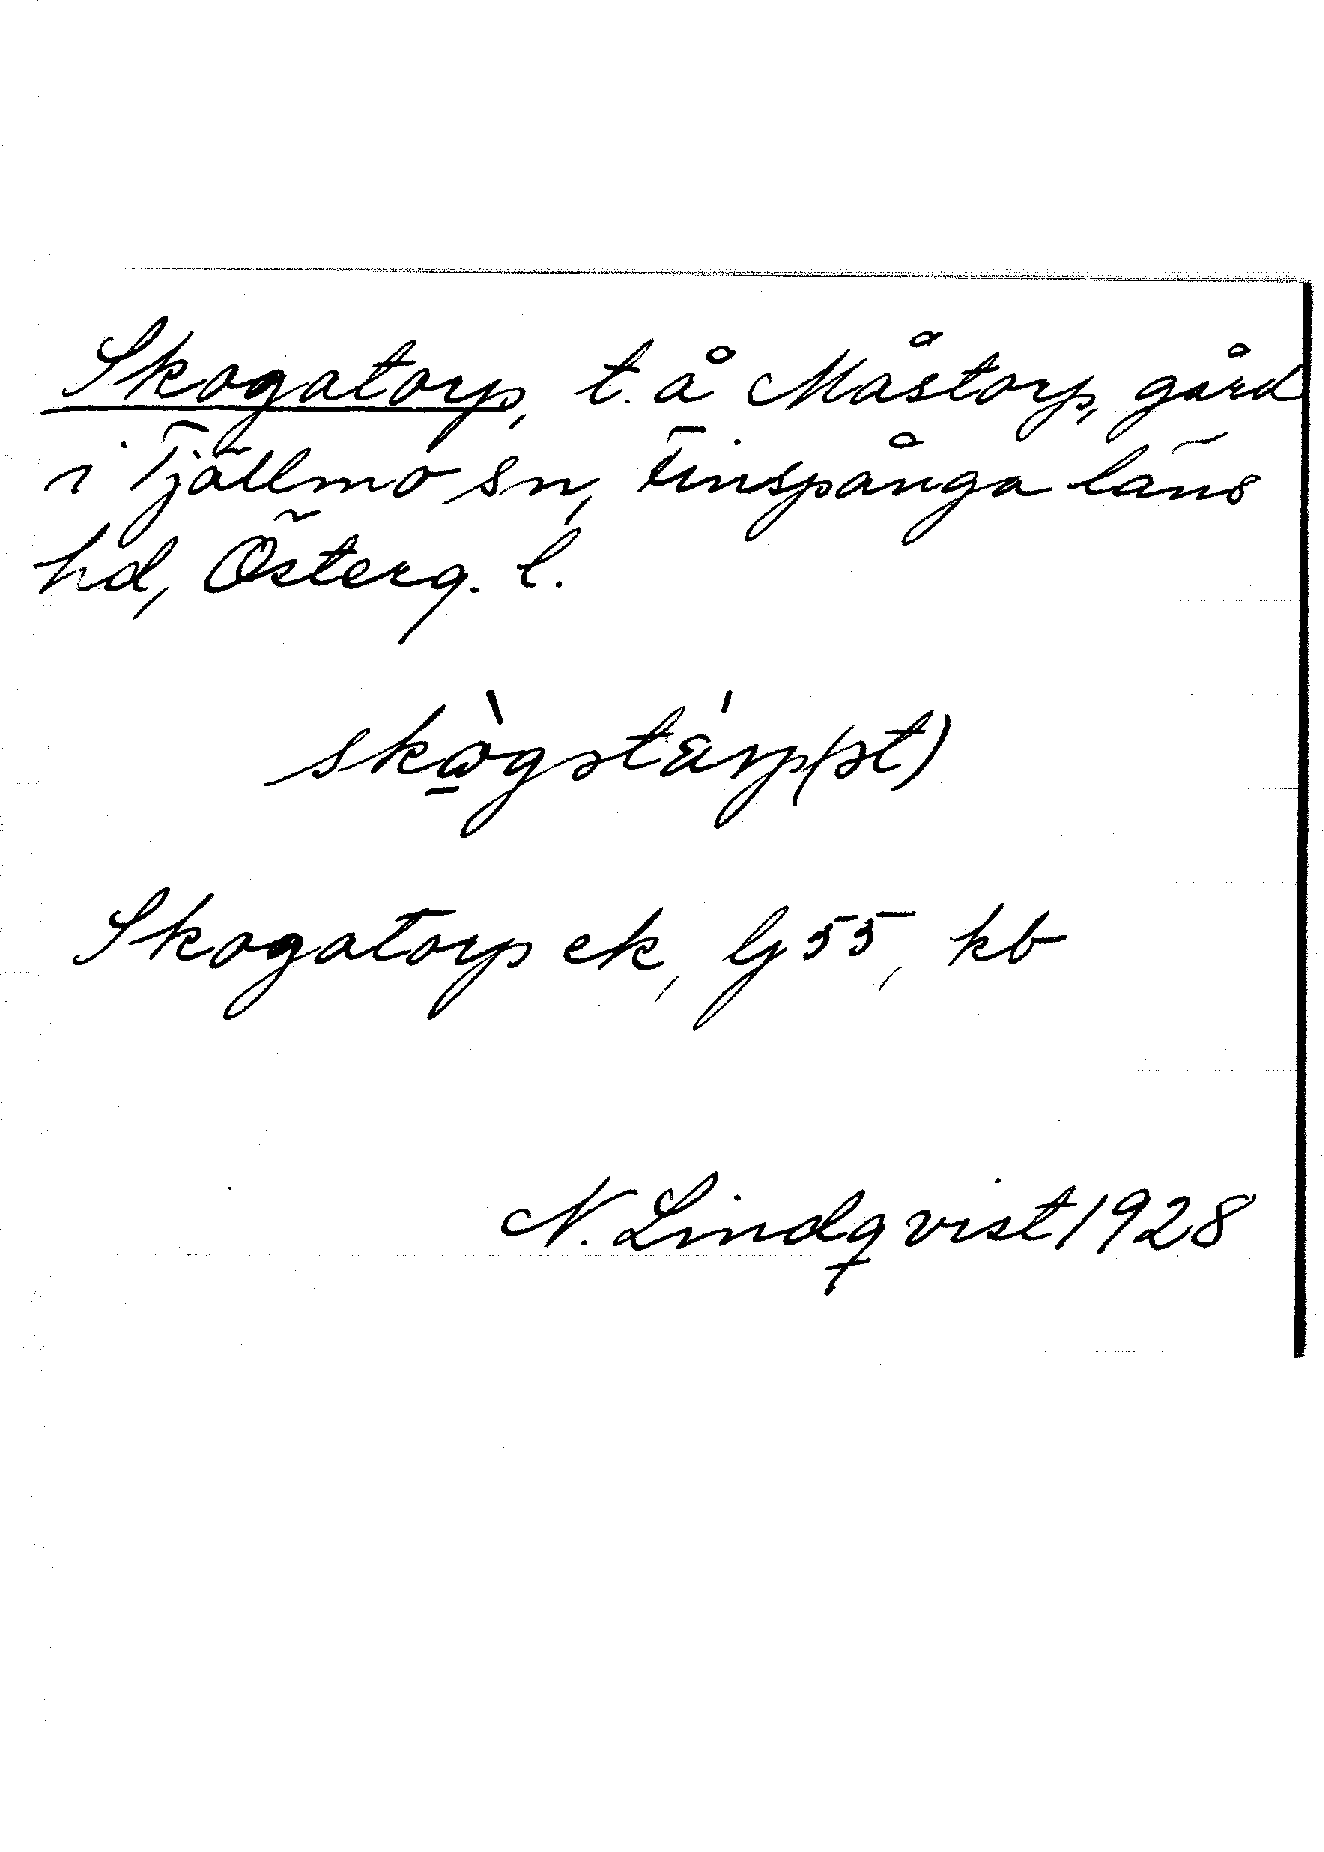 Skogatorp, t. å Måstorp, gård
i Tjällmo sn, Finspånga läns
hd, Österg. l.
skὼ̲gətárp(ət)
Skogatorp ek, Gj 55, kb
N. Lindqvist 1928